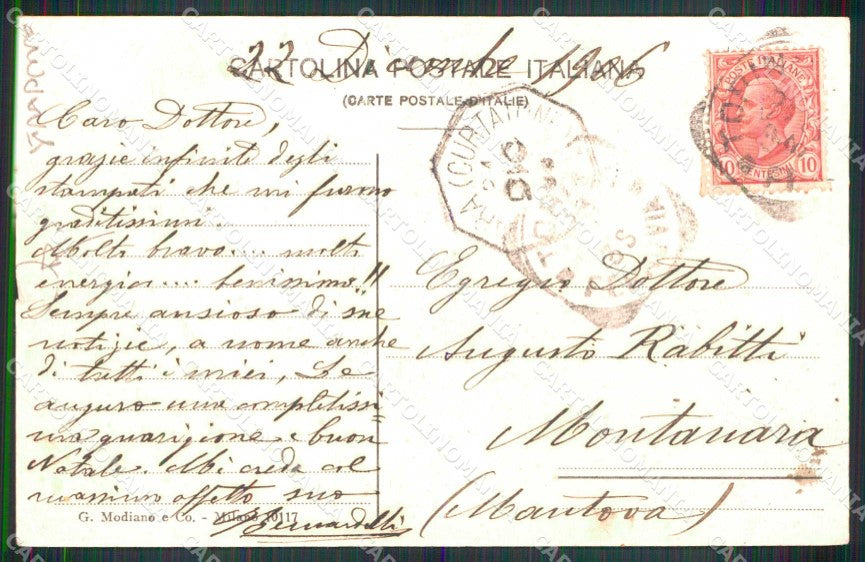 22 Dicembre 1906
CARTOLINA POSTALE ITALIANA
(CARTE POSTALE D'ITALIE)
Caro Dottore,
grazie infinite degli
stampati che mi furono
graditissimi.
Molto bravo.... molta
energia.... benissimo!!
Sempre ansioso di sue
notizie, a nome anche
di tutti i miei, Le
auguro una completissi=
ma guarigione e buon
Natale. Mi creda col
massimo affetto suo
Bernardelli
G. Modiano e Co. - Milano 10117
POSTE ITALIANE
10 CENTESIMI 10
(CURTATONE)
DIC
Egregio Dottore
Augusto Rabitti
Montanara
(Mantova)
CARTOLINOMANIA